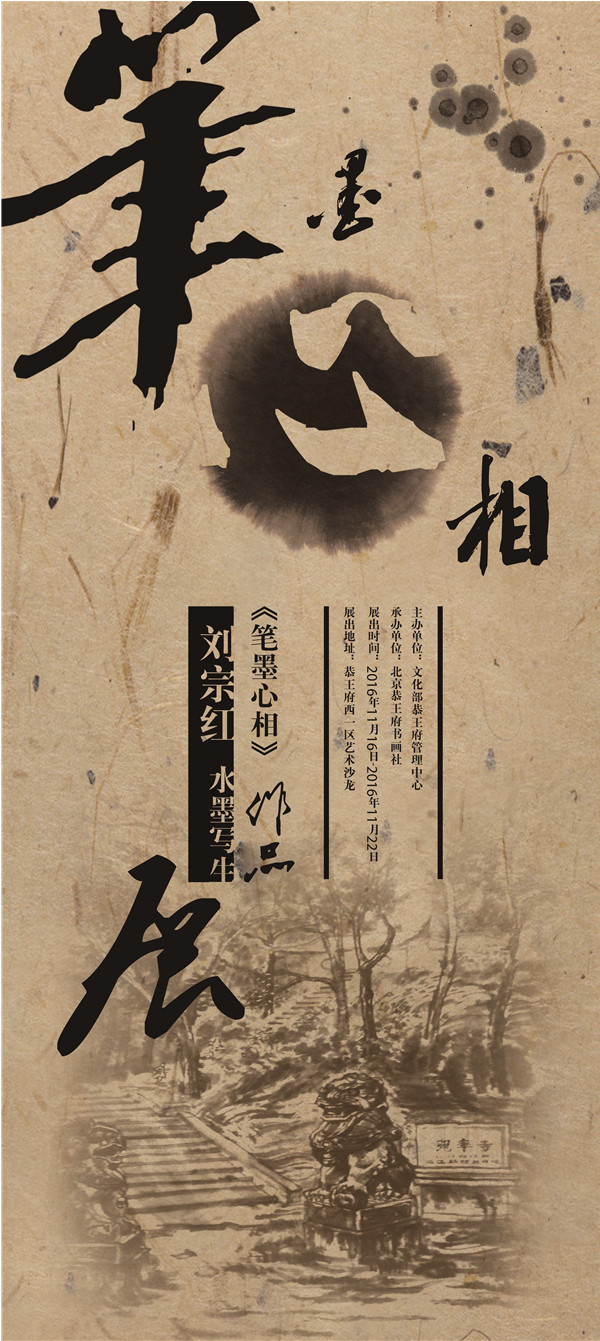 筆
墨
心
相
主办单位：文化部恭王府管理中心
承办单位：北京恭王府书画社
展出时间：2016年11月16日-2016年11月22日
展出地址：恭王府西一区艺术沙龙
《笔墨心相》
作品
刘宗红 水墨写生
展